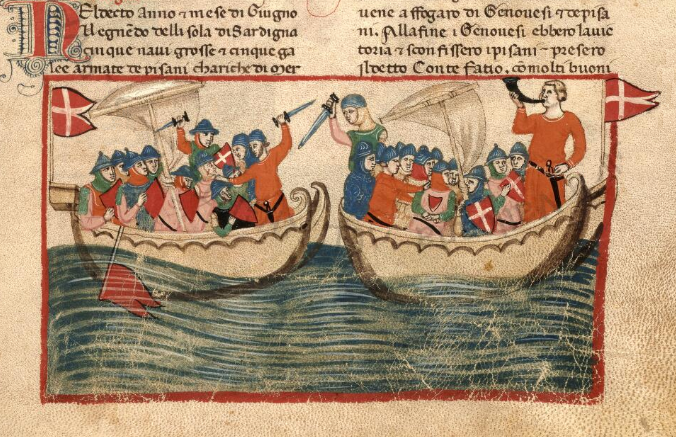 Nel decto Anno & mese di Giugno
Il egnēdo delli sola di Sardigna
cinque navi grosse & cinque ga
lee armate de pisani chariche di mer
uene a ffogaro di Genouesi & de pisa
ni. Alla fine i Genouesi ebbero lauic
toria & sconfissero i pisani & presero
il detto Conte Fatio, cō molti buoni